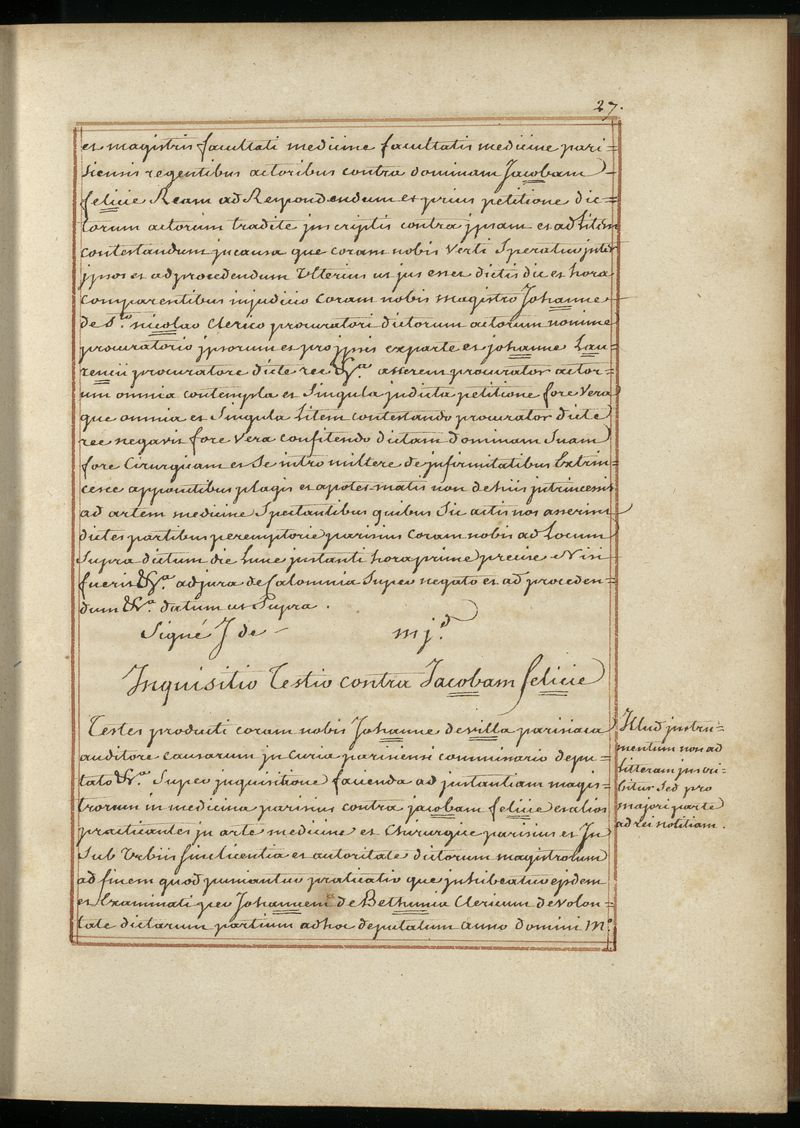 27.
et magistris facultati medicine facultatis medicine pari=
siensis regentibus actoribus contra dominam Jacobam
felicie Ream ad Respondendum et prius petitione dic=
torum actorum tradite jnscriptis contra jpsam et ad Litem
contestandum jncausa que coram nobis Verti Speratur jnter
jpsos et ad procedendum Ulterius ut jus esset dictis die et hora
comparentibus injudicio coram nobis magistro Johanne
de S.to nicolao Clerico procuratori dictorum actorum nomine
procuratorio jpsorum et pro jpsis exparte et johanne Lau=
rencii procuratore dicte ree &ra. asserem procurator actor=
um omnia contempta et Singula jndicta petitione fore Vera
que omnia et Singula Litem contestando procurator dicte
ree negavit fore Vera confitendo dictam dominam Suam
fore Cirurgicam et Se intro mittere de jnfirmitatibus Extrin=
cece apponitibus plagis et apotesmatis non de hiis jntrincesis
ad artem medicine Spectantibus quibus Sic actis nos asserim
dictes partibus peremptorie parisius coram nobis ad Locum
Supra dictum die Lune justanti hora prime precise Nisi
fuerit &ra. ad jura de Calomnia Super negato et ad proceden=
dum &ra. datum ut Supra.
Signé J de – mj.d
Inquisitio Testio contra Jacobam felicie
Testes producti coram nobis Johanne de villa parisiaca
auditore causarum jn Curia parisiensi commissario depu=
tato &ra. Super jnquisitione facienda ad justantiam magis=
trorum in medicina parisius contra jacobam felicie et alios
practicantes jn arte medicine et Chirurgie parisius et Jn
Sub Urbiis Sinelicentia et autoritate dictorum magistrorum
ad finem quod puniantur praticatio que jnhibeatur ejsdem
et Examinati per Johannem de Bethunia Clericum de Volon=
tate dictarum partium adhoc deputatum anno domini M.o
Illud jnstru=
mentum non ad
Litteram jnscri=
bitur Sed pro
majori parte
ad rei notitiam.